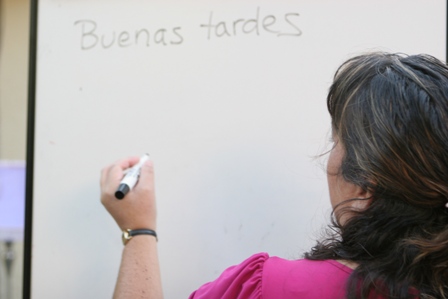 Buenas tardes